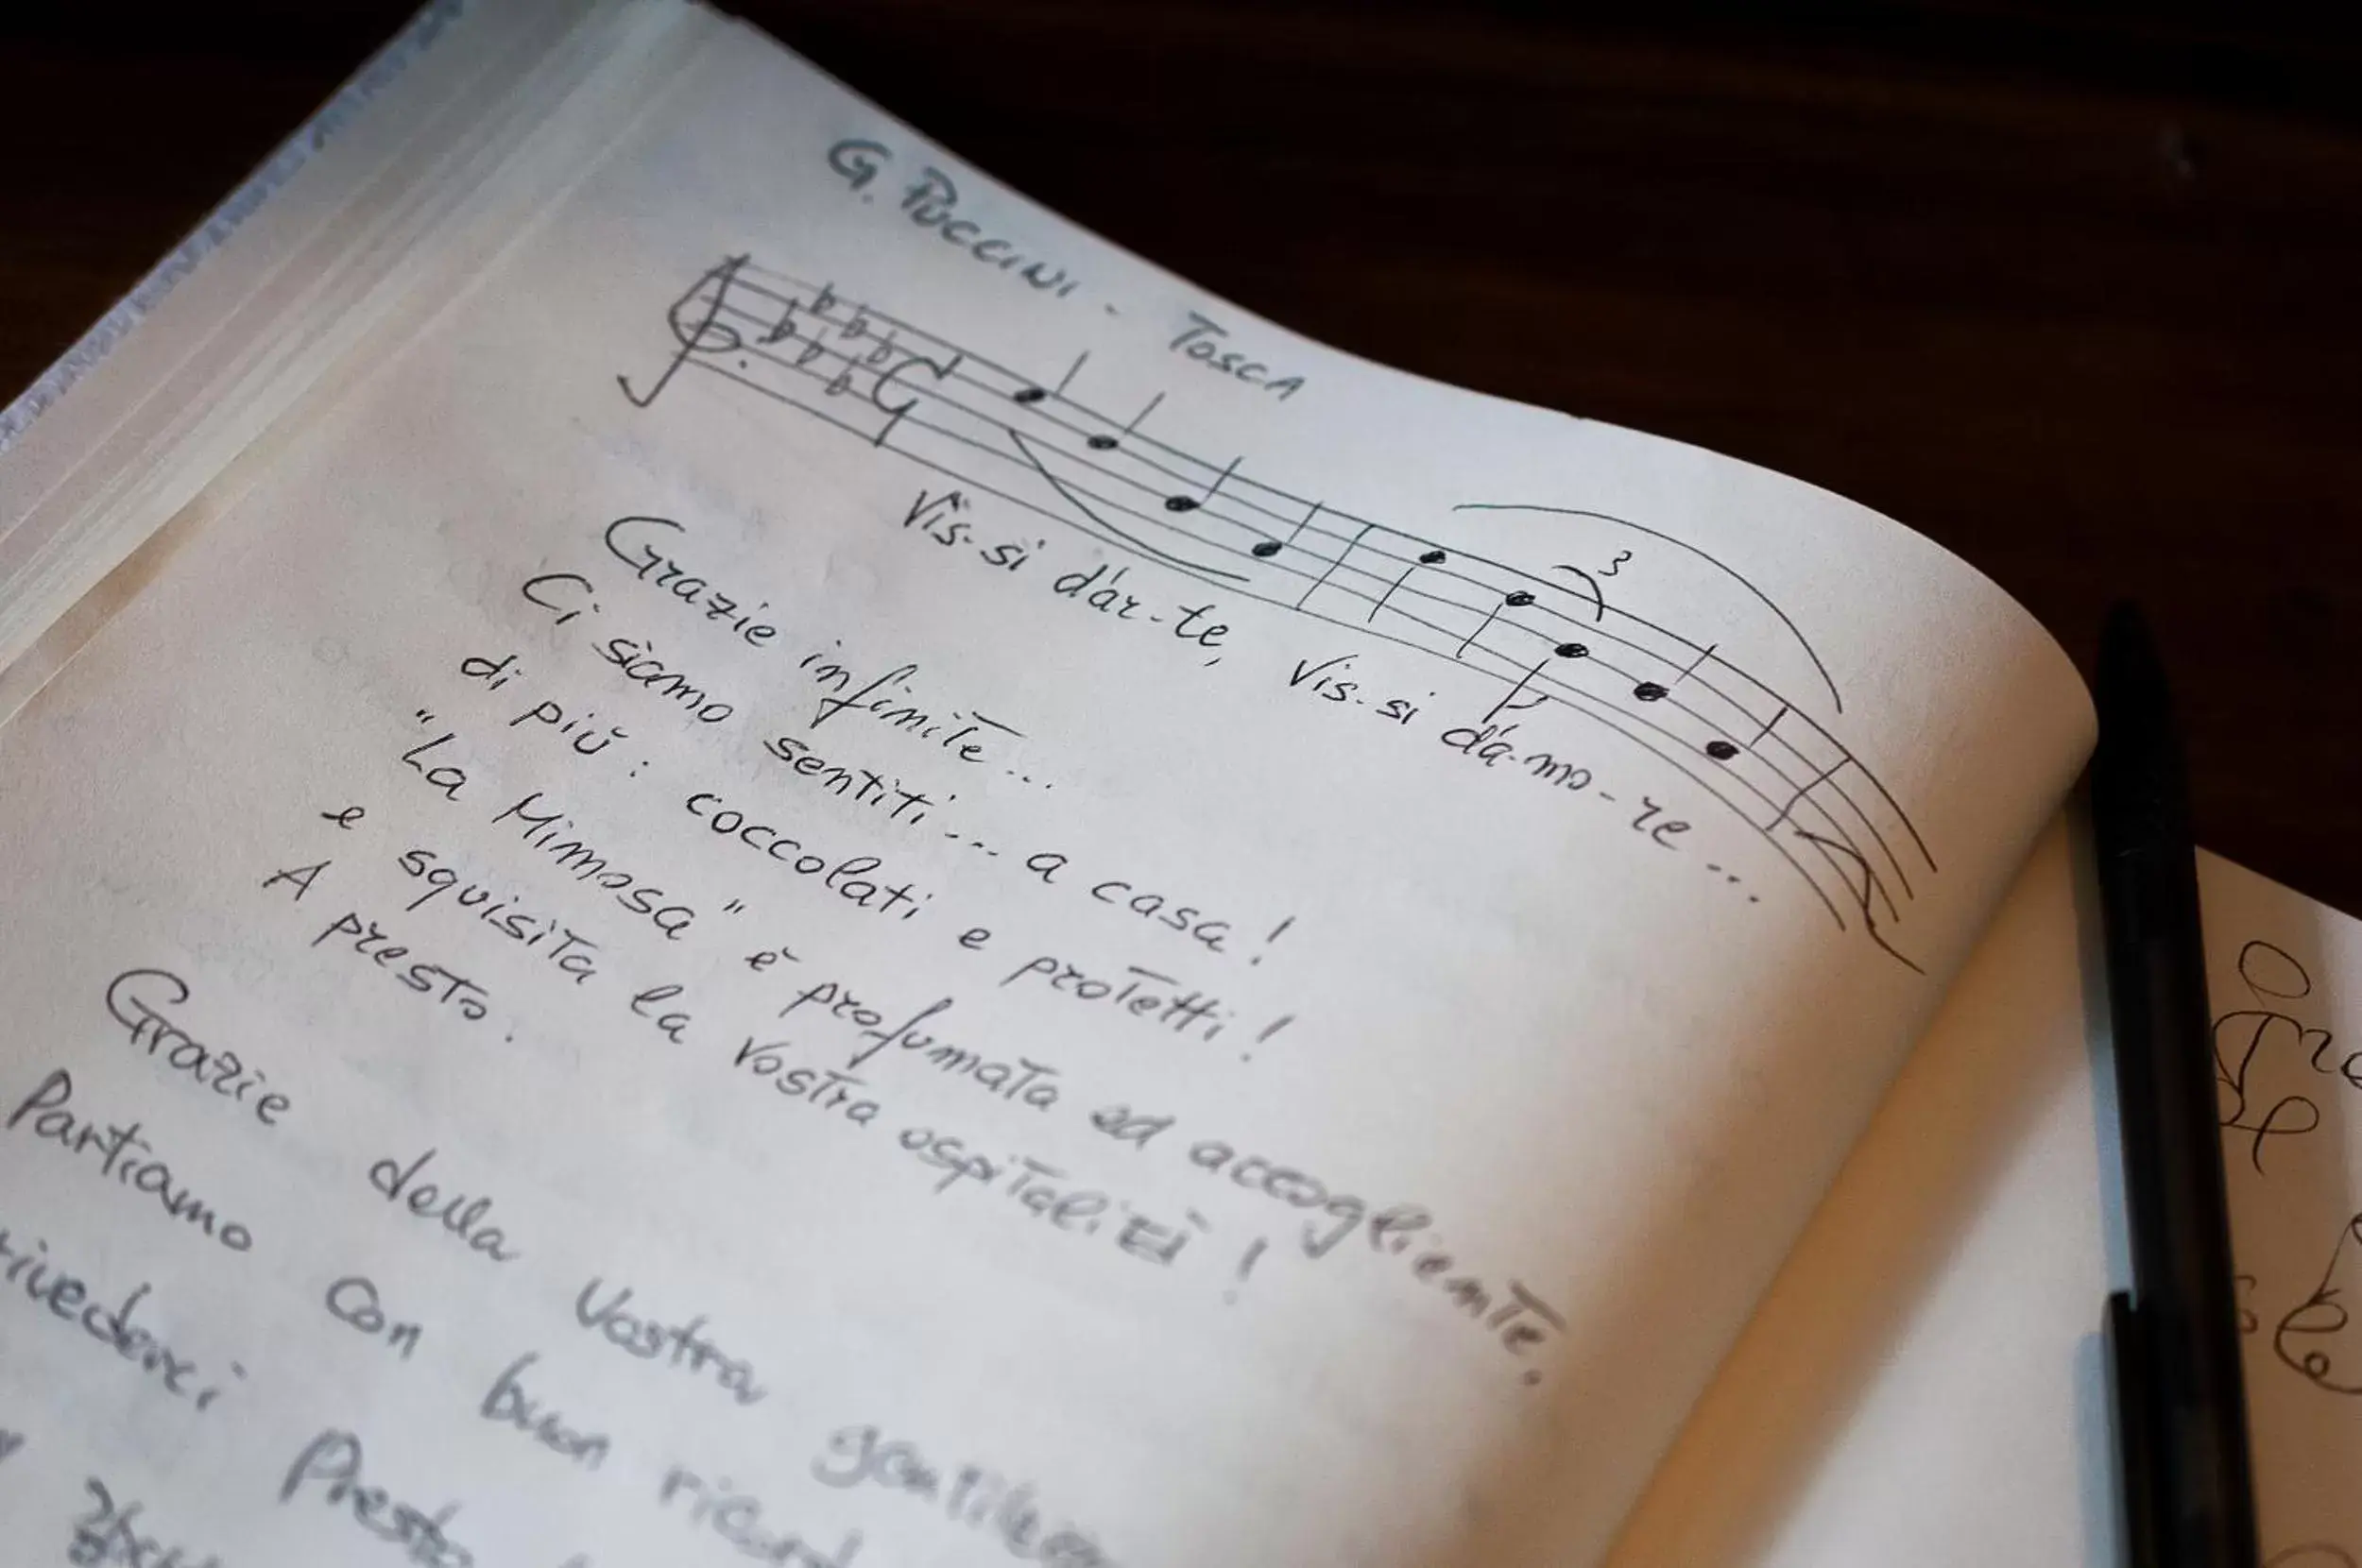 G. PUCCINI - TOSCA
3
Vis-si d'ar-te, vis-si d'a-mo-re...
Grazie infinite...
Ci siamo sentiti... a casa!
di più: coccolati e protetti!
"La Mimosa" è profumata ed accogliente.
e squisita la vostra ospitalità!
A presto.
Grazie della Vostra
Partiamo con buon
Presto